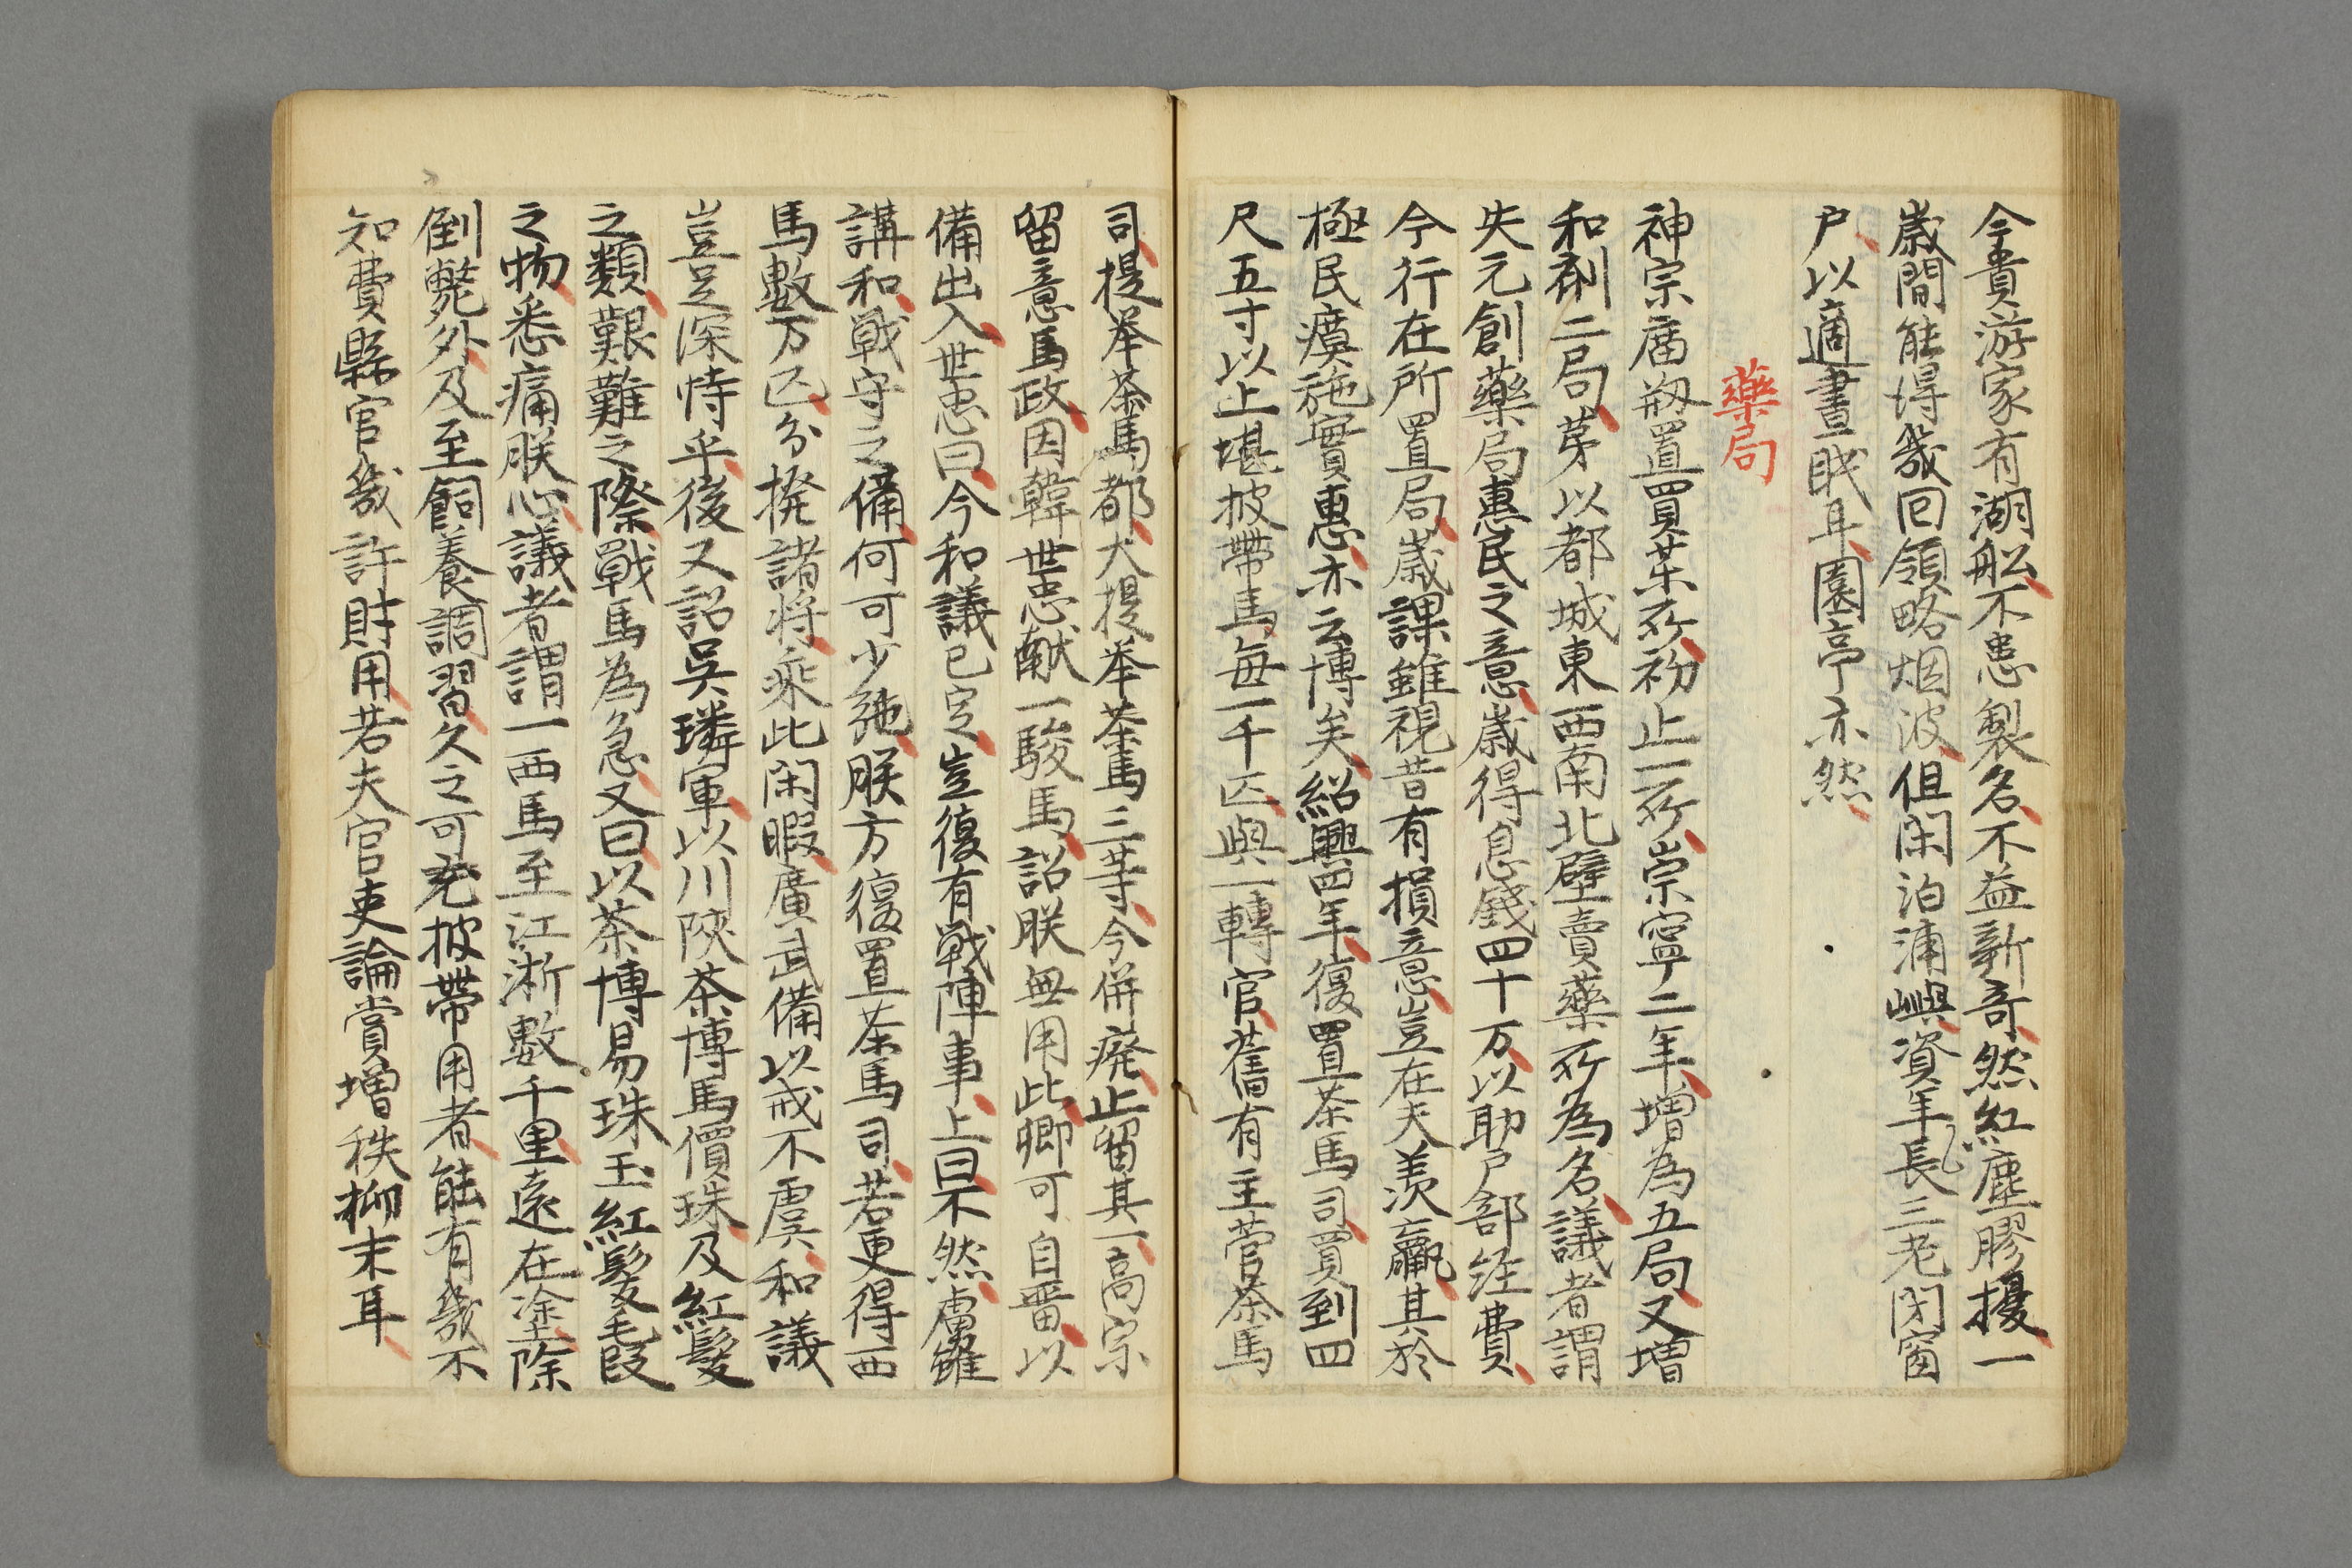 今貴游家有湖舩不患製名不益新奇然紅塵膠擾一
歳間能得幾回領略烟波但閑泊浦嶼資年長三老閉窗
户以適晝眠耳園亭亦然
藥局
神宗廟剏置買茶所初止一所崇寧二年增為五局又增
和剤二局茅以都城東西南北壁賣藥所為名議者謂
失元創藥局惠民之意歳得息錢四十万以助户部経費
今行在所置局歳課雖視昔有損意豈在夫羨贏其於
極民瘼施實惠亦云博矣紹興四年復置茶馬司買到四
尺五寸以上堪披帶馬每一千匹與一轉官舊有主管茶馬
司提举茶馬都大提举茶馬三等今併癈止留其一高宗
留意馬政因韓世忠献一駿馬詔朕無用此卿可自留以
備出入世忠曰今和議已定豈復有戰陣事上曰不然虜雖
講和戰守之備何可少弛朕方復置茶馬司若更得西
馬數万匹分撥諸将乘此閑暇廣武備以戒不虞和議
豈足深恃乎後又詔吳璘軍以川陝茶博馬價珠及紅髮
之類艱難之際戰馬為急又曰以茶博易珠玉紅髮毛段
之物悉痛朕心議者謂一西馬至江淅數千里遠在塗除
倒斃外及至飼養調習久之可充披帶用者能有幾不
知費縣官幾許財用若夫官吏論賞增秩抑末耳